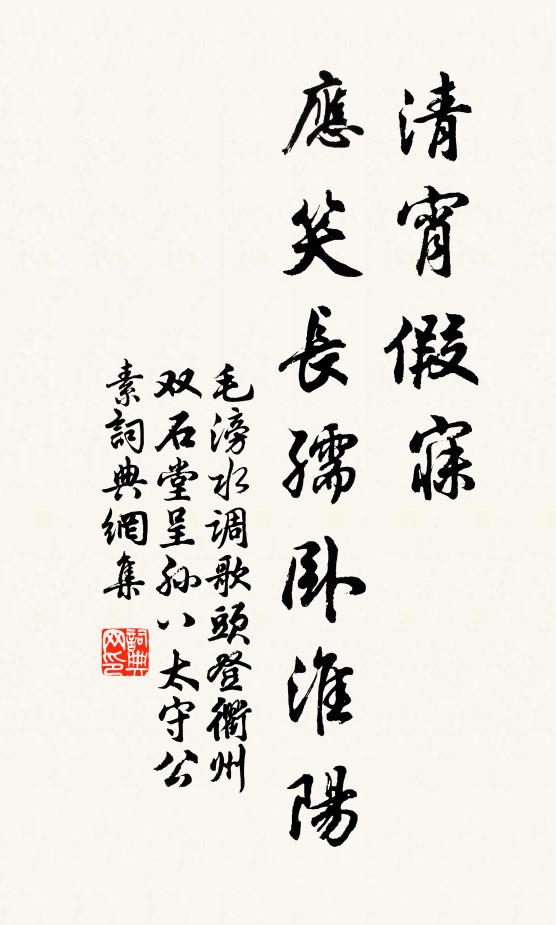 清宵假寐
應笑長孺臥淮陽
毛滂水调歌頭登衢州
双石堂呈孙八太守公
素詞典網集
詞典网印